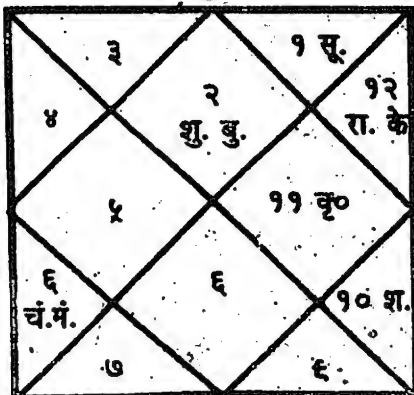 ३
१ सू.
२
शु. बु.
१२
रा. के
४
५
११ वृ०
६
चं.मं.
६
१० श.
७
९